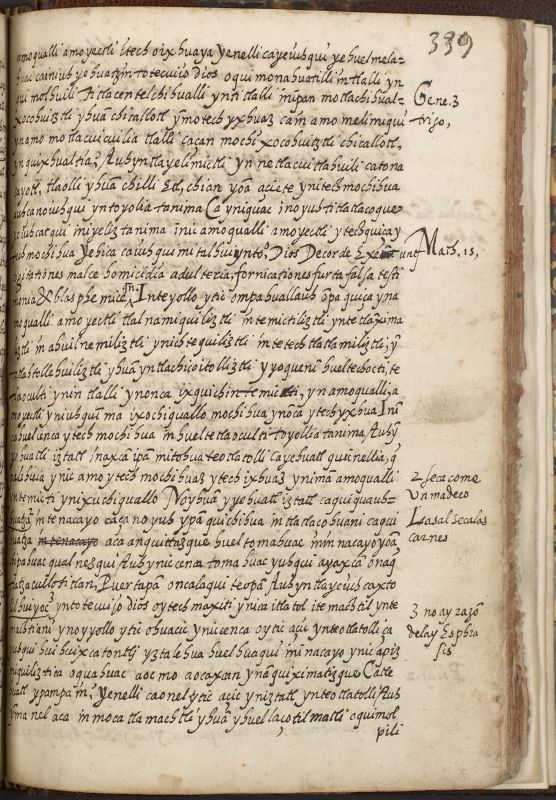 339
amoqualli amoyectli itech oixhuaya yenelli caye iuhqui ye huel mela=
huac caniuh yehuatzin totecuiyo Dios oqui monahuatilli in tlalli yn
qui molhuili Titlacentelchihualli ynti tlalli inipan motlachihual=
xocohuiztli yhuā chicallotl ymotech yxhuaz can amo melimiqui
ynamo motlacuicuilia tlalli cacan mochi xocohuiztli chicallotl,
yn quixhualtia, Auhyntlayelimictli yn netlacuitlahuili catona
cayotl, tlaolli yhuā chilli Etl, chian yoā aciete ynitech mochihua
auhcanoiuhqui yntoyolia tanima Ca yniquac inoyuhtitlatlacoque
ye iuhcatqui iniyeliz tanima inic amoqualli amoyectli ytechquiça y
tech mochihua Yehica caiuhqui mitalhuiynto, Dios De corde Exeunt
cogitationes malae homicidia adulteria, fornicationes furta falsa testi
monia & blasphemiae, In teyollo ytic ompahuallauh ōpa quiça yna
moqualli amoyectli tlalnamiquiliztli intemictiliztli yntetlaxima
liztli in ahuilnemiliztli ynichtequiliztli in tetech tlatlamiliztli, y
tlahtollehuiliztli yhuā yntlachicoitolliztli yyoquenī hueltebocti, te
tlaoculti ynin tlalli ynonca ixquichin temicti, yn amoqualli, a
moyectli yniuhqui ma ixochiquallo mochihua ynoca ytechyxhua Inī
cahuelcenca ytech mochihua in hueltetlaoculti toyollia tanima, Auh
yehuatli iztatl inaxcā ipā mitohua teotlatolli Cayehuatl quinellia, q
palehuia ynic amo ytech mochihuaz ytech ixhuaz ynimā amoqualli
intemicti ynixuchiquallo Noyhuā yyehuatl iztatl caquiquauh=
huatza in tenacayo caça noyuh ypā quichihua in tlatlacohuani caqui
huatza aca anquittazque huel tomahuac inin nacayo yoā
cipahuac qualnezqui Auhynicenca tomahuac yuhqui ayaxcā onaq
tlatzacuillotitlan, Puertapā oncalaqui teopā Auhyntlayeiuh caxto
ilhuiyoc ynto tecuiyo dios oytech maxiti ynica itlatol itemachtil ynte
machtiani ynoyyollo ytic ohuacic ynicenca oytic acic ynteotlatolli ca
iuhqui huihuixcatontli yztalehua huelhuaqui ininacayo ynic apiz
miquiliztica oquahuac aocmo aocaxcan ynāquiximatizque Caste
huatl ypampa in, Yenelli caonelytic acic yn iztatl ynteotlatolli, Auh
yma nel aca in moca tlamachtli yhuā yhuel laçotilmatli oquimol
pili
Gene. 3
trigo,
Math. 15,
2 seca como
vn madeco
La sal seca las
carnes
3 no ay razō
de la yzophra
sis